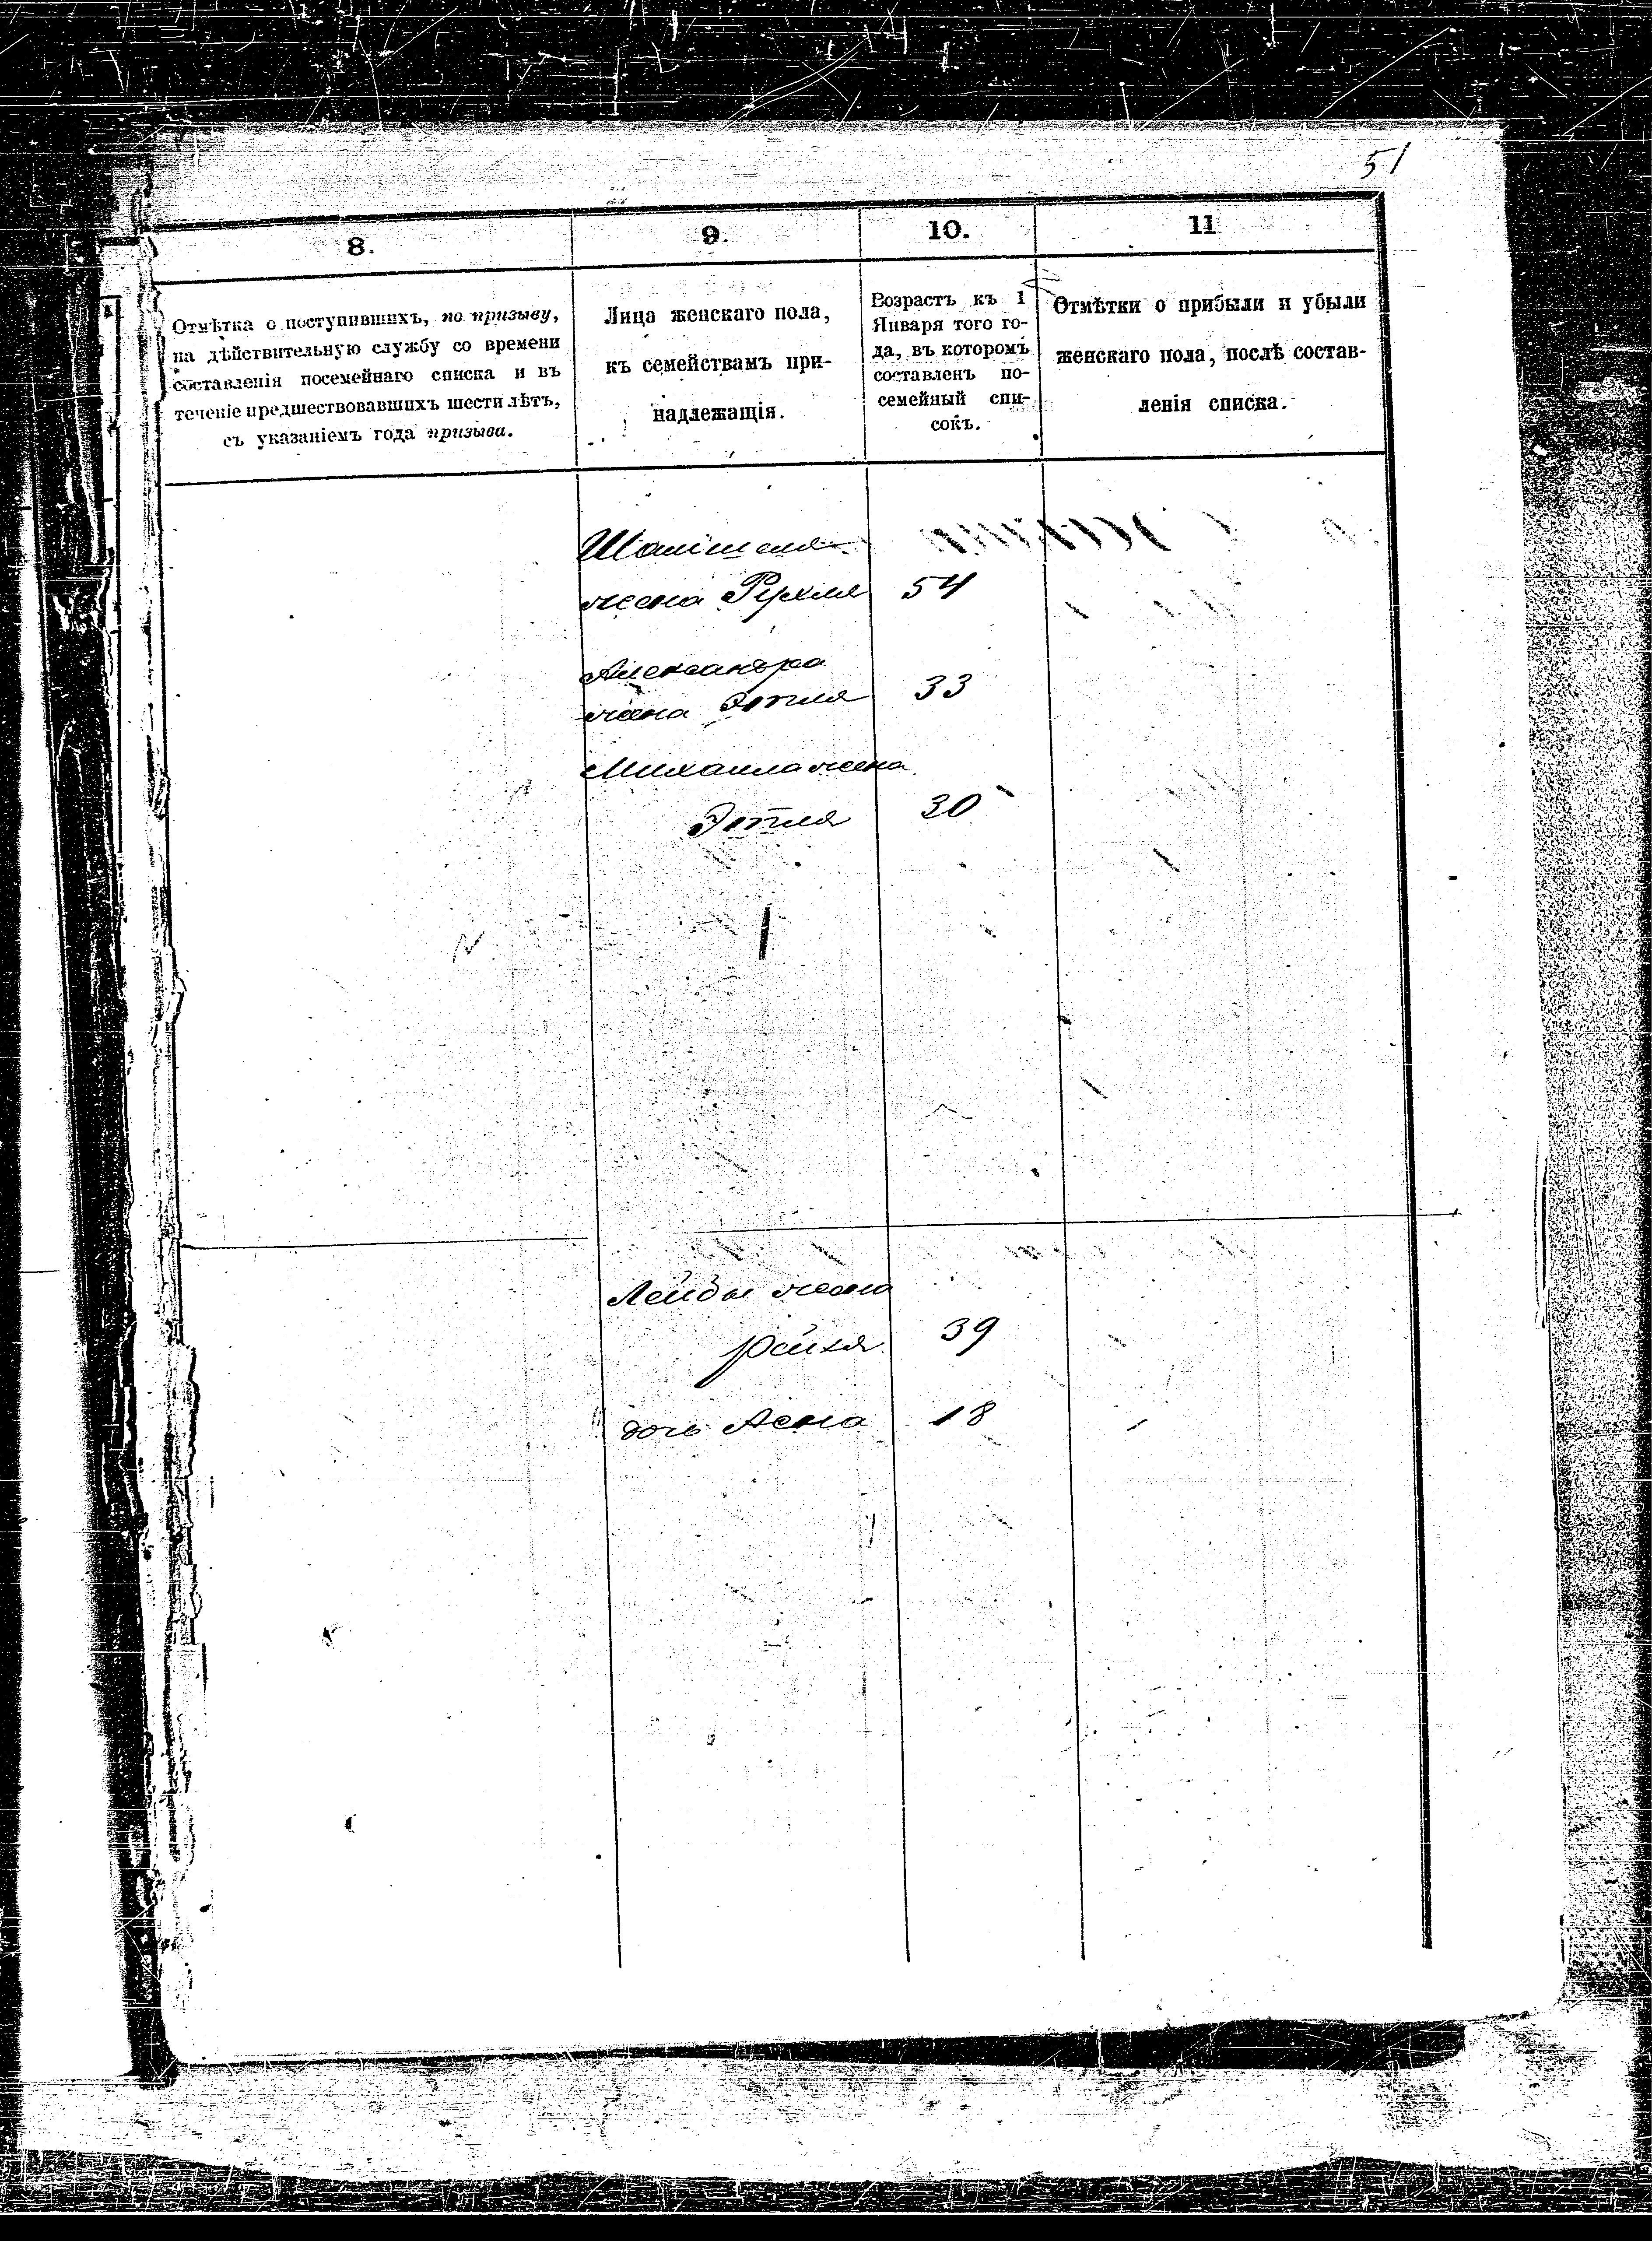 51
8.
9.
10.
11
Отмѣтка о поступившихъ, по призыву,
на дѣйствительную службу со времени
составленія посемейнаго списка и въ
теченіе предшествовавшихъ шести лѣтъ,
съ указаніемъ года призыва.
Лица женскаго пола,
къ семействамъ при-
надлежащія.
Возрастъ къ 1
Января того го-
да, въ которомъ
составленъ по-
семейный спи-
сокъ.
Отмѣтки о прибыли и убыли
женскаго пола, послѣ состав-
ленія списка.
жена Рухля 54
Александра
жена Этля 33
Михаила жена
Этля 30
Лейбы жена
Рейхя 39
дочь Асна 18